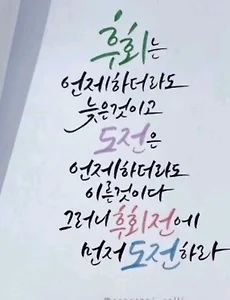 후회는
언제하더라도
늦은것이고
도전은
언제하더라도
이른것이다
그러니 후회전에
먼저 도전하라